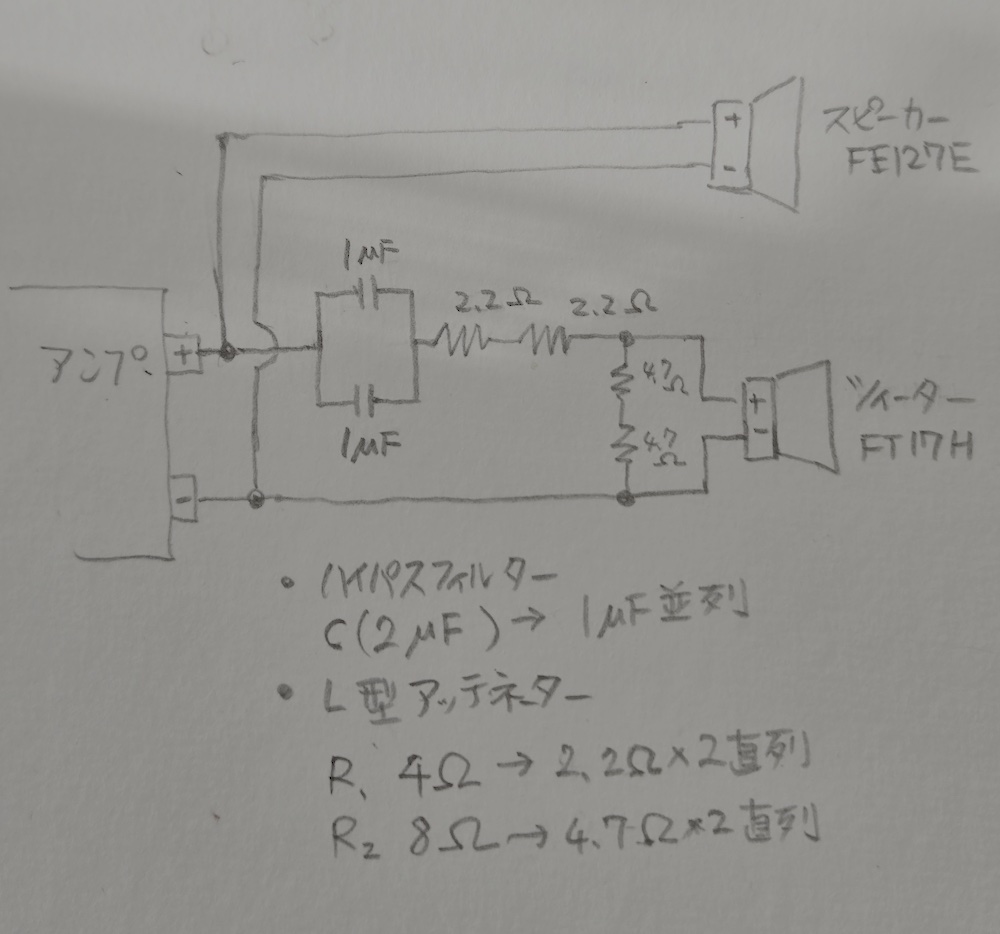 スピーカー
FE127E
+
-
1μF
2.2Ω 2.2Ω
アンプ
+
4.7
Ω
4.7
Ω
1μF
+
-
ツィーター
FT17H
-
・ハイパスフィルター
C(2μF)→ 1μF並列
・L型アッテネーター
R₁ 4Ω → 2.2Ω×2直列
R₂ 8Ω → 4.7Ω×2直列